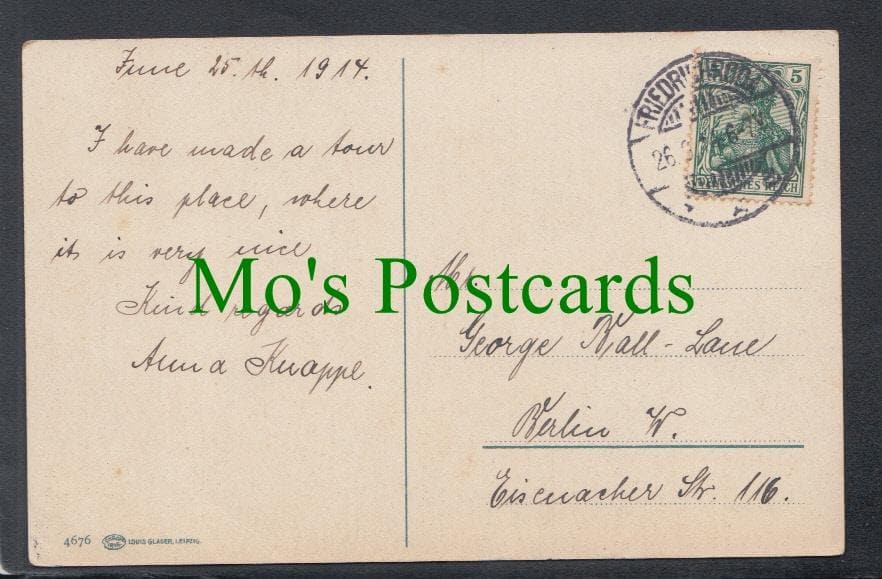 June 25.th. 1914.
I have made a tour
to this place, where
it is very nice
Kind regards
Anna Knappe.
5
FRIEDRICHRODA
26.
DEUTSCHES REICH
Mo's Postcards
Mr.
George Kall-Lane
Berlin W.
Eisenacher Str. 116.
4676 LOUIS GLASER, LEIPZIG.